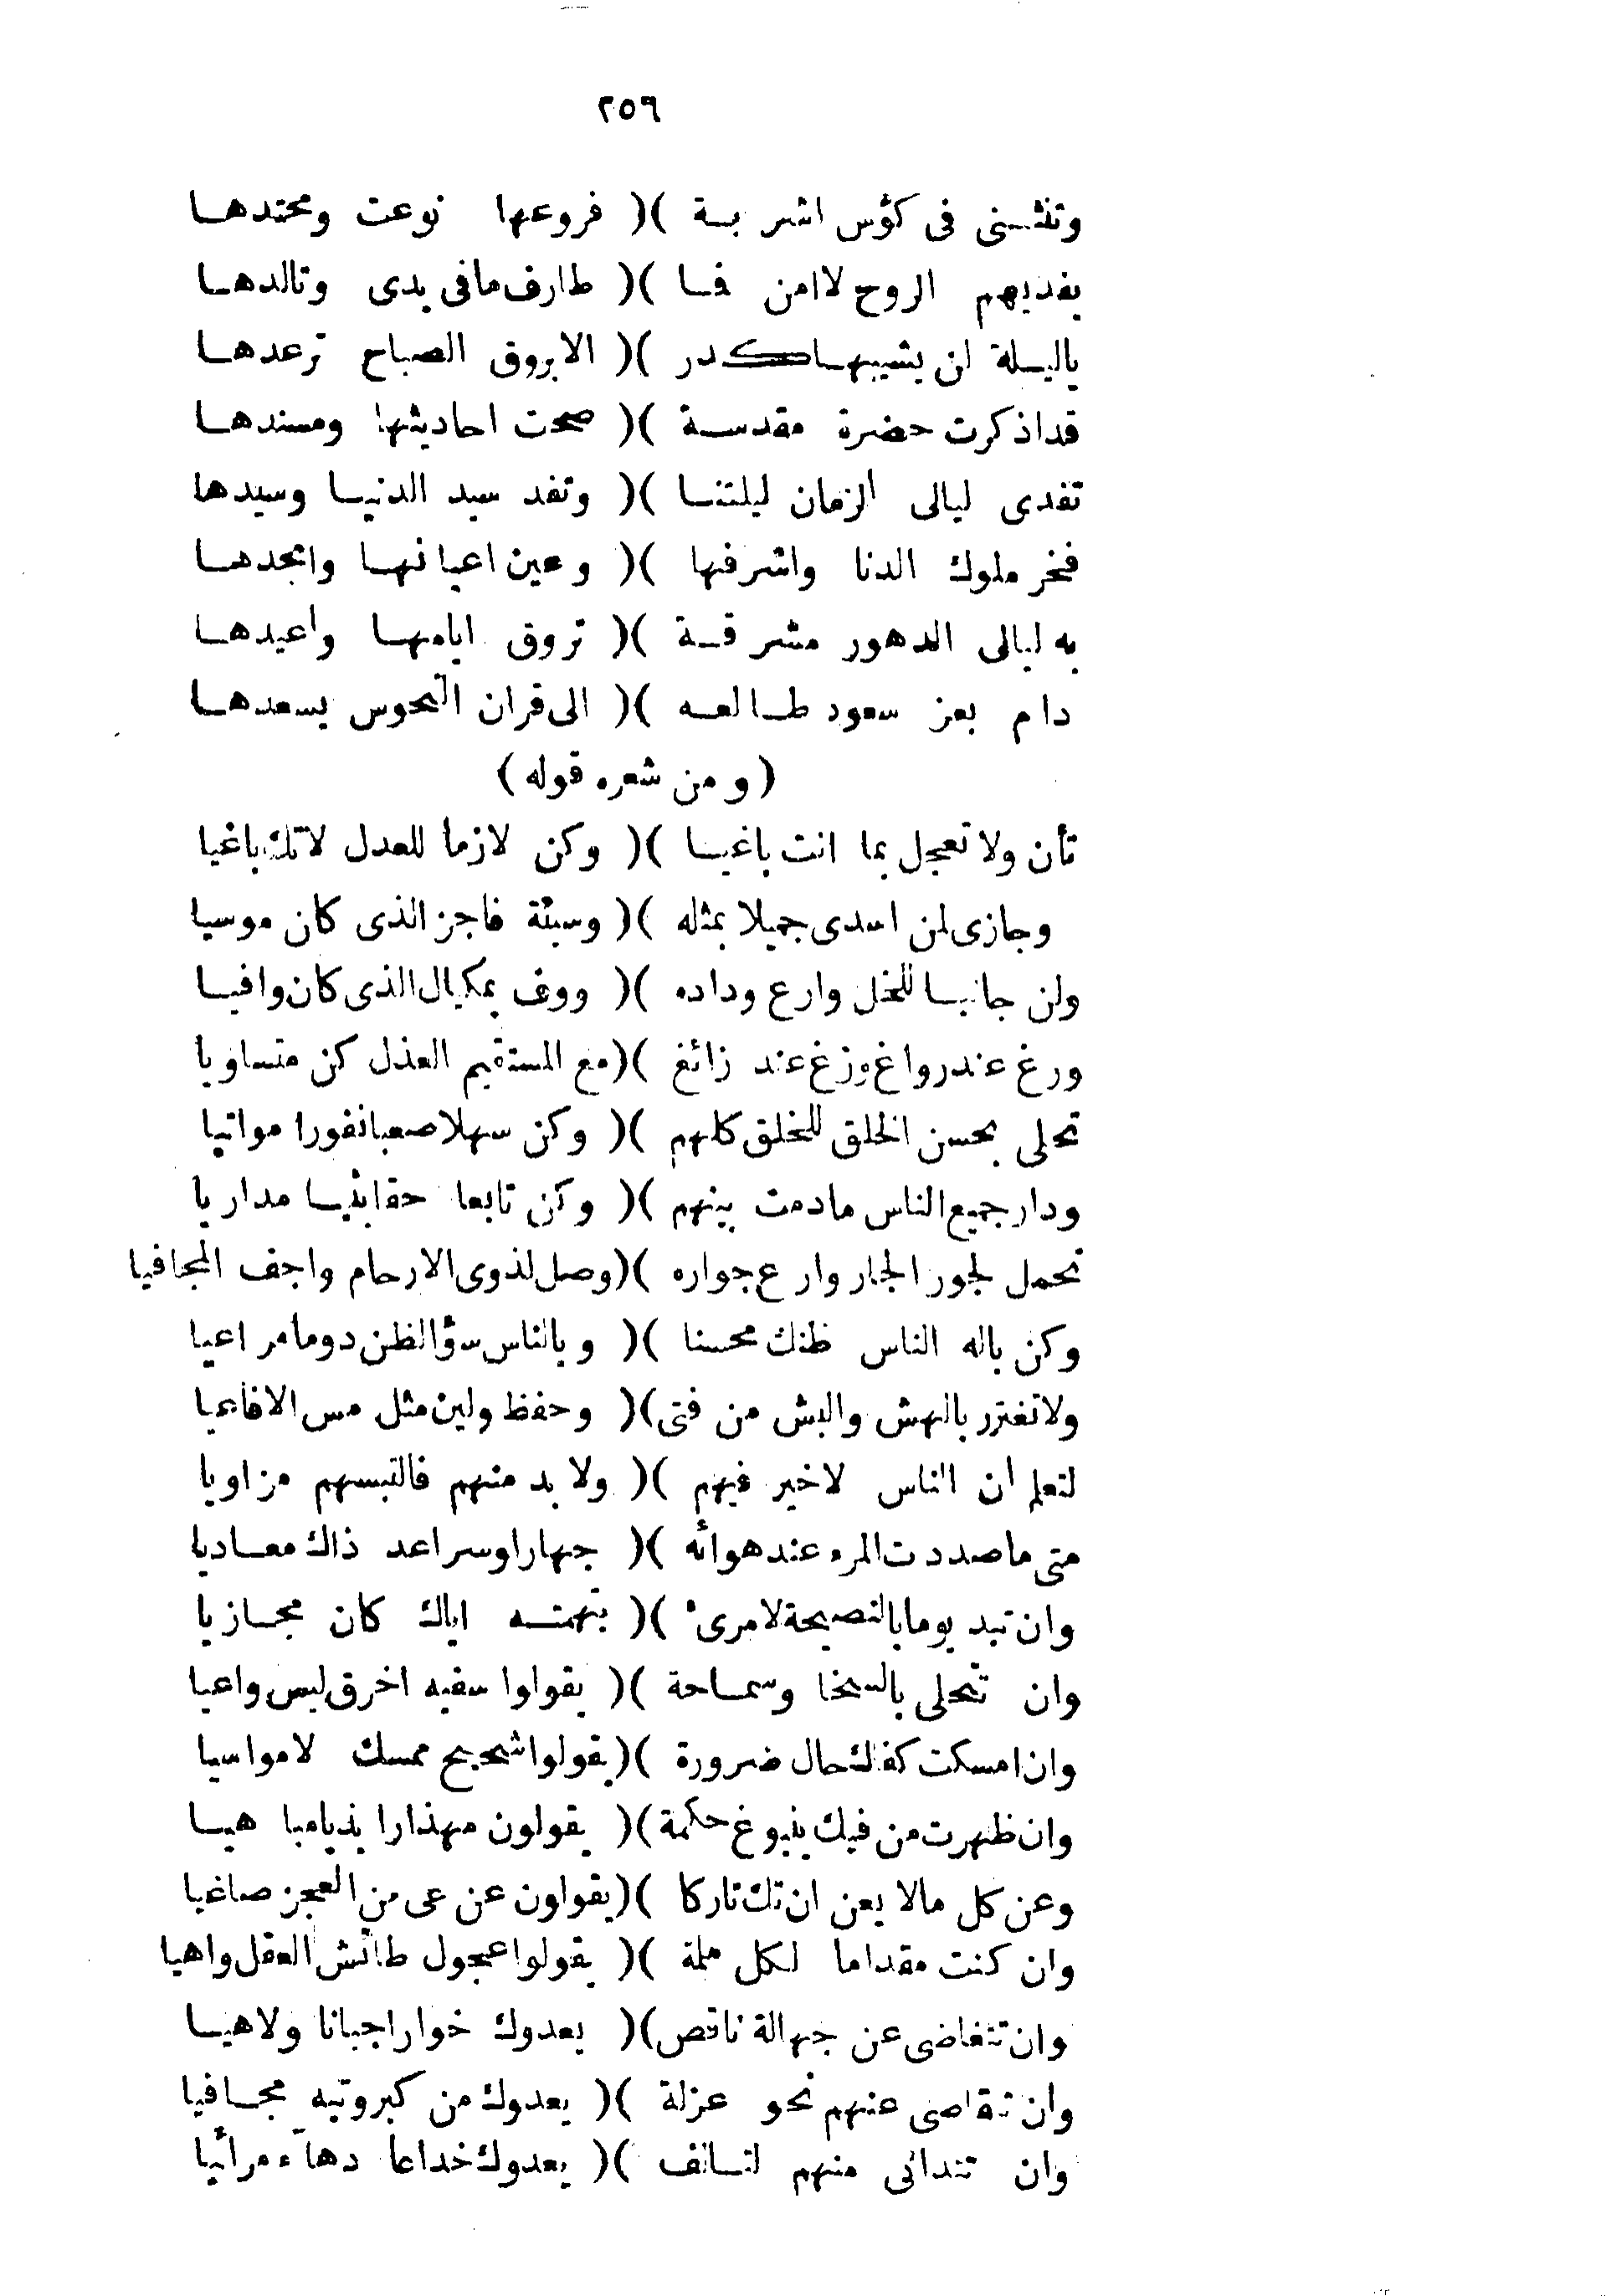 ٢٥٦
وتنثنى فى كؤس اشربة )( فروعها نوعت ومحتدها
بفديهم الروح لاامن فا )( طارف مافى يدى وتالدها
ياليلة لن يشيبها كدر )( الابروق الصباح ترعدها
قداذكرت حضرة مقدسة )( صحت احاديثها ومسندها
تفدى ليالى الزمان ليلتنا )( وتفد سيد الدنيا وسيدها
فخر ملوك الدنا واشرفها )( وعين اعيانها وامجدها
به ليالى الدهور مشرقة )( تروق ايامها واعيدها
دام بعز سعود طالعه )( الى قران النحوس يسعدها
(ومن شعره قوله)
تأن ولا تعجل بما انت باغيا )( وكن لازما للعدل لاتك باغيا
وجازى لمن اسدى جميلا بمثله )( وسيئة فاجز الذى كان موسيا
ولن جانبا للخل وارع وداده )( ووف بمكيال الذى كان وافيا
ورغ عند رواغ وزغ عند زائغ )( مع المستقيم العذل كن متساويا
تحلى بحسن الخلق للخلق كلهم )( وكن سهلا صعبا نفورا مواتيا
ودار جميع الناس مادمت بينهم )( وكن تابعا حقا بذيا مداريا
تحمل لجور الجار وارع جواره )( وصل لذوى الارحام واجف المجافيا
وكن باله الناس ظنك محسنا )( وبالناس سؤالظن دوما مراعيا
ولاتغترر بالهش والبش من فتى )( وحفظ ولين مثل مس الافاعيا
لتعلم ان الناس لاخير فيهم )( ولا بد منهم فالتبسهم مزاويا
متى ماصددت المرء عند هوائه )( جهارا وسرا عد ذاك معاديا
وان تبد يوما بالنصيحة لامرىء )( بتهمته اياك كان مجازيا
وان تتحلى بالسخا وسماحة )( يقولوا سفيه اخرق ليس واعيا
وان امسكت كفاك حال ضرورة )( يقولوا شحيح ممسك لامواسيا
وان ظهرت من فيك ينبوغ حكمة )( يقولون مهذارا بذيا مباهيا
وعن كل مالا يعن ان تك تاركا )( يقولون عن عى من العجز صاغيا
وان كنت مقداما لكل ملمة )( يقولوا عجول طائش العقل واهيا
وان تتغاضى عن جهالة ناقص )( يعدوك خوارا جبانا ولاهيا
وان تقاصى عنهم نحو عزلة )( يعدوك من كبروتيه مجافيا
وان تتدانى منهم لتألف )( يعدوك خداعا دهاء مرأئيا